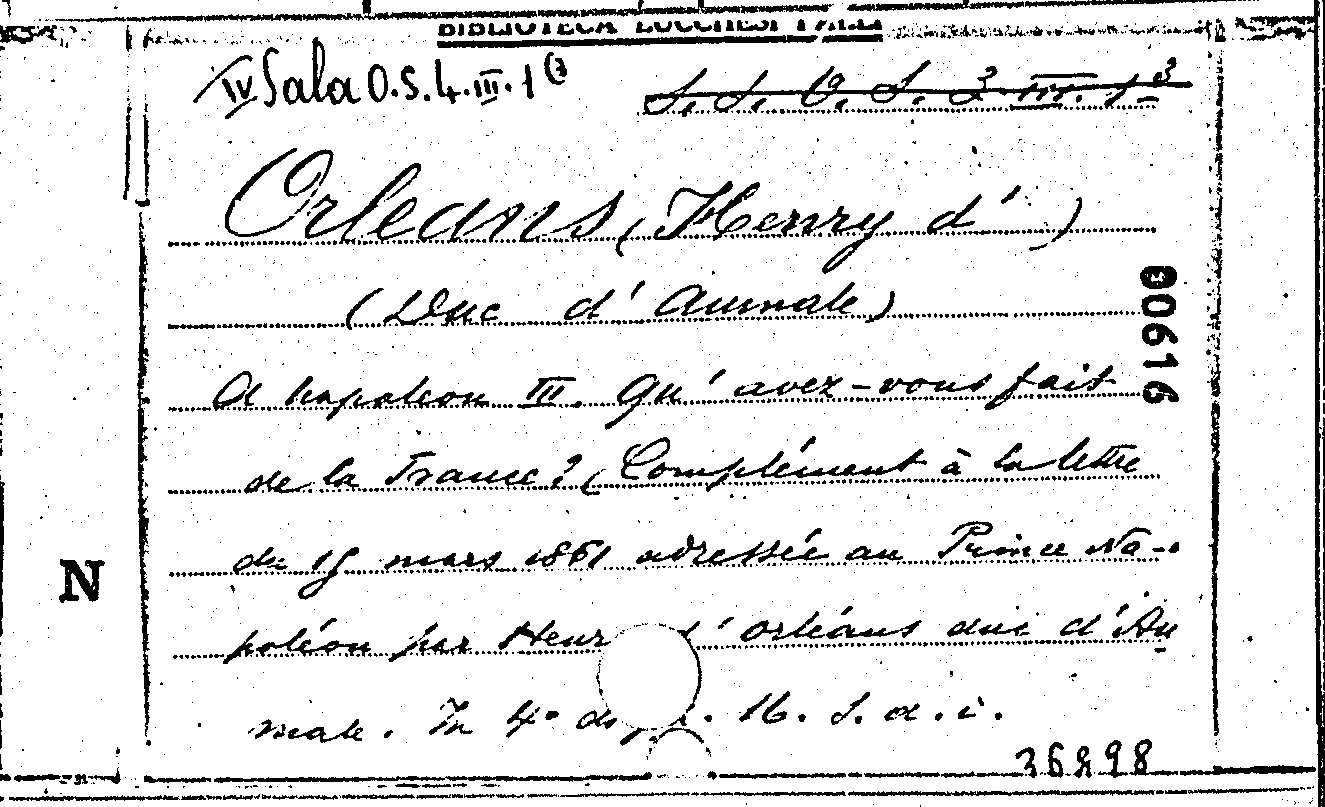 BIBLIOTECA LUCCHESI PALLI
IV Sala O.S.4.III.1(3
S. S. O. S. 3 III. 1-3
Orleans, (Henry d' )
(Duc d' Aumale)
00616
A Napoléon III. Qu' avez-vous fait
de la France? (Complément à la lettre
du 15 mars 1861 adressée au Prince Na-
poléon par Henr d' Orléans duc d'Au
male. In 4° di p. 16. S. d. i.
N
36898